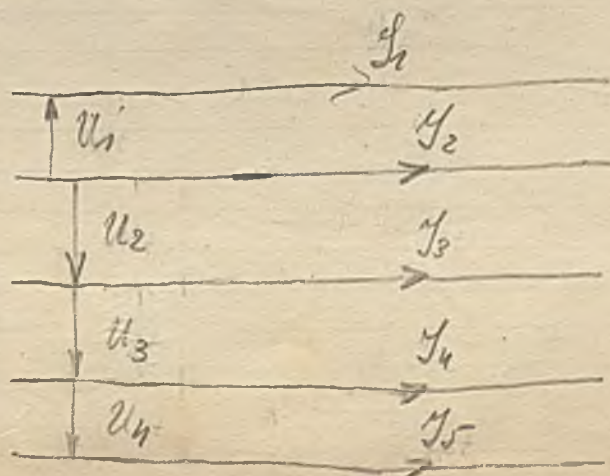 I₁
U₁
I₂
U₂
I₃
U₃
I₄
U₄
I₅